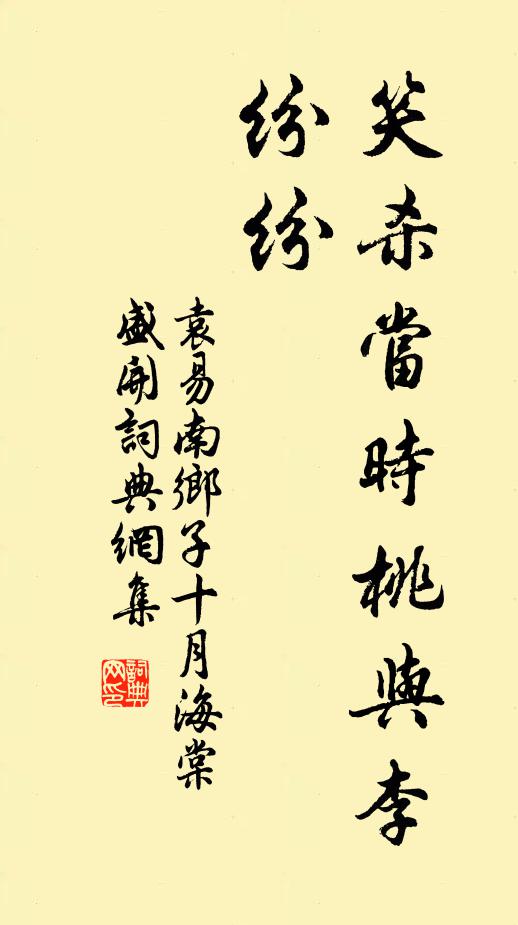 笑杀當時桃與李
紛紛
袁易南鄉子十月海棠
盛開詞典網集
詞典
网印